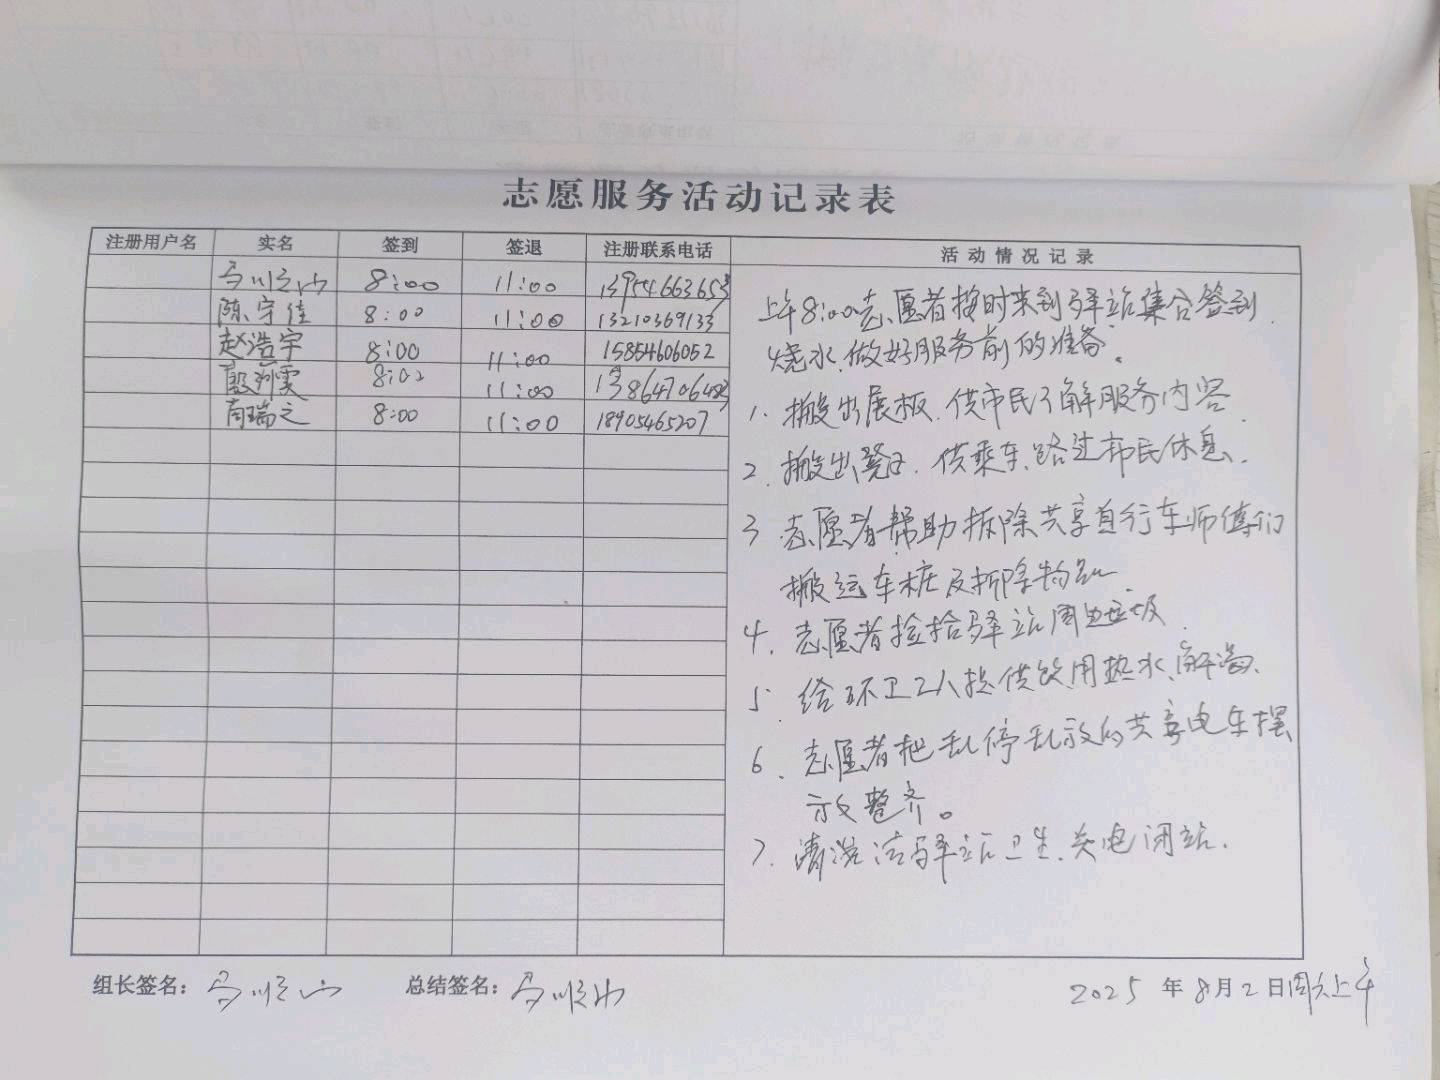 志愿服务活动记录表
注册用户名 实名 签到 签退 注册联系电话 活动情况记录
马顺山 8:00 11:00 13954663653
陈守佳 8:00 11:00 13210369133
赵浩宇 8:00 11:00 15854606052
殷 雯 8:02 11:00
尚瑞之 8:00 11:00 18905465207
上午8:00志愿者按时来到驿站集合签到
烧水、做好服务前的准备。
1. 搬出展板.供市民了解服务内容
2. 搬出凳子.供乘车、路过市民休息.
3 志愿者帮助拆除共享自行车师傅们
搬运车桩及拆除物品
4. 志愿者捡拾驿站周边垃圾.
5. 给环卫工人提供饮用热水、解渴.
6、志愿者把乱停乱放的共享电车摆
放整齐。
7. 清洁驿站卫生、关电闭站.
组长签名: 马顺山 总结签名: 马顺山 2025 年 8 月 2 日 周六上午